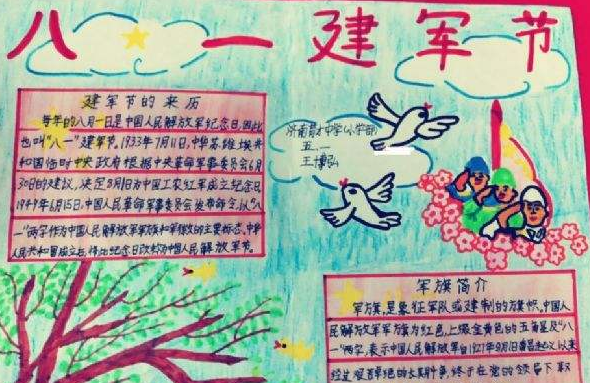 八一建军节
建军节的来历
每年的八月一日是中国人民解放军纪念日,因此
也叫"八一"建军节。1933年7月11日,中华苏维埃共
和国临时中央政府根据中央革命军事委员会6月
30日的建议,决定8月1日为中国工农红军成立纪念日。
1949年6月15日,中国人民革命军事委员会发布命令,以"八
一"两字作为中国人民解放军军旗和军徽的主要标志。中华
人民共和国成立后,将此纪念日改称为中国人民解放军建军节。
济南育才中学小学部
五.一
王博弘
军旗简介
军旗,是象征军队或建制的旗帜。中国人
民解放军军旗为红色,上缀金黄色的五角星及"八
一"两字,表示中国人民解放军自1927年8月1日南昌起义以来
经过艰苦卓绝的长期斗争,终于在党的领导下取